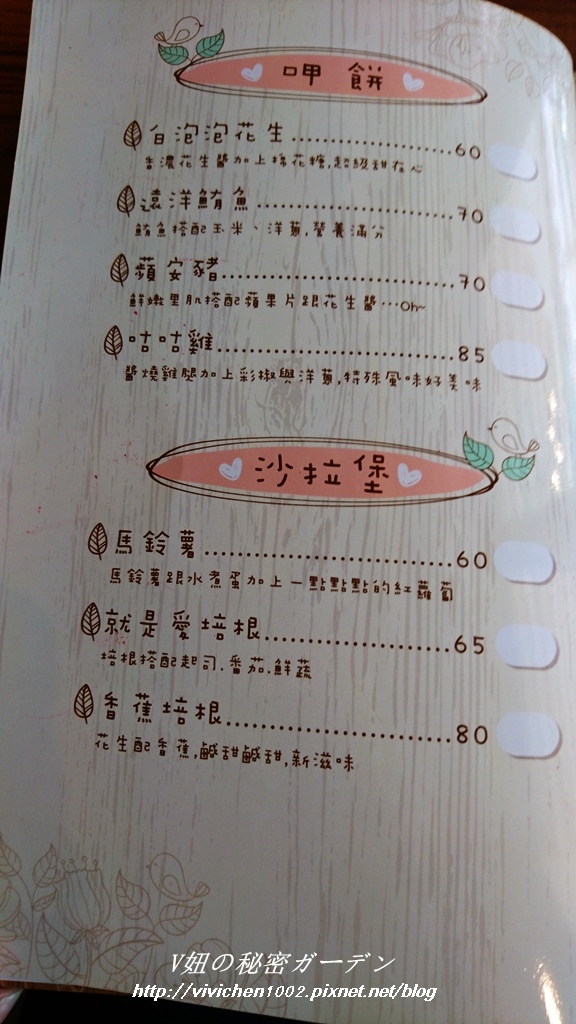 呷餅
白泡泡花生 60
香濃花生醬加上棉花糖,超級甜在心
遠洋鮪魚 70
鮪魚搭配玉米、洋蔥,營養滿分
蘋安豬 70
鮮嫩里肌搭配蘋果片跟花生醬…Oh~
咕咕雞 85
醬燒雞腿加上彩椒與洋蔥,特殊風味好美味
沙拉堡
馬鈴薯 60
馬鈴薯跟水煮蛋加上一點點點的紅蘿蔔
就是愛培根 65
培根搭配起司.番茄.鮮蔬
香蕉培根 80
花生配香蕉,鹹甜鹹甜,新滋味
V妞の秘密ガーデン
http://vivichen1002.pixnet.net/blog